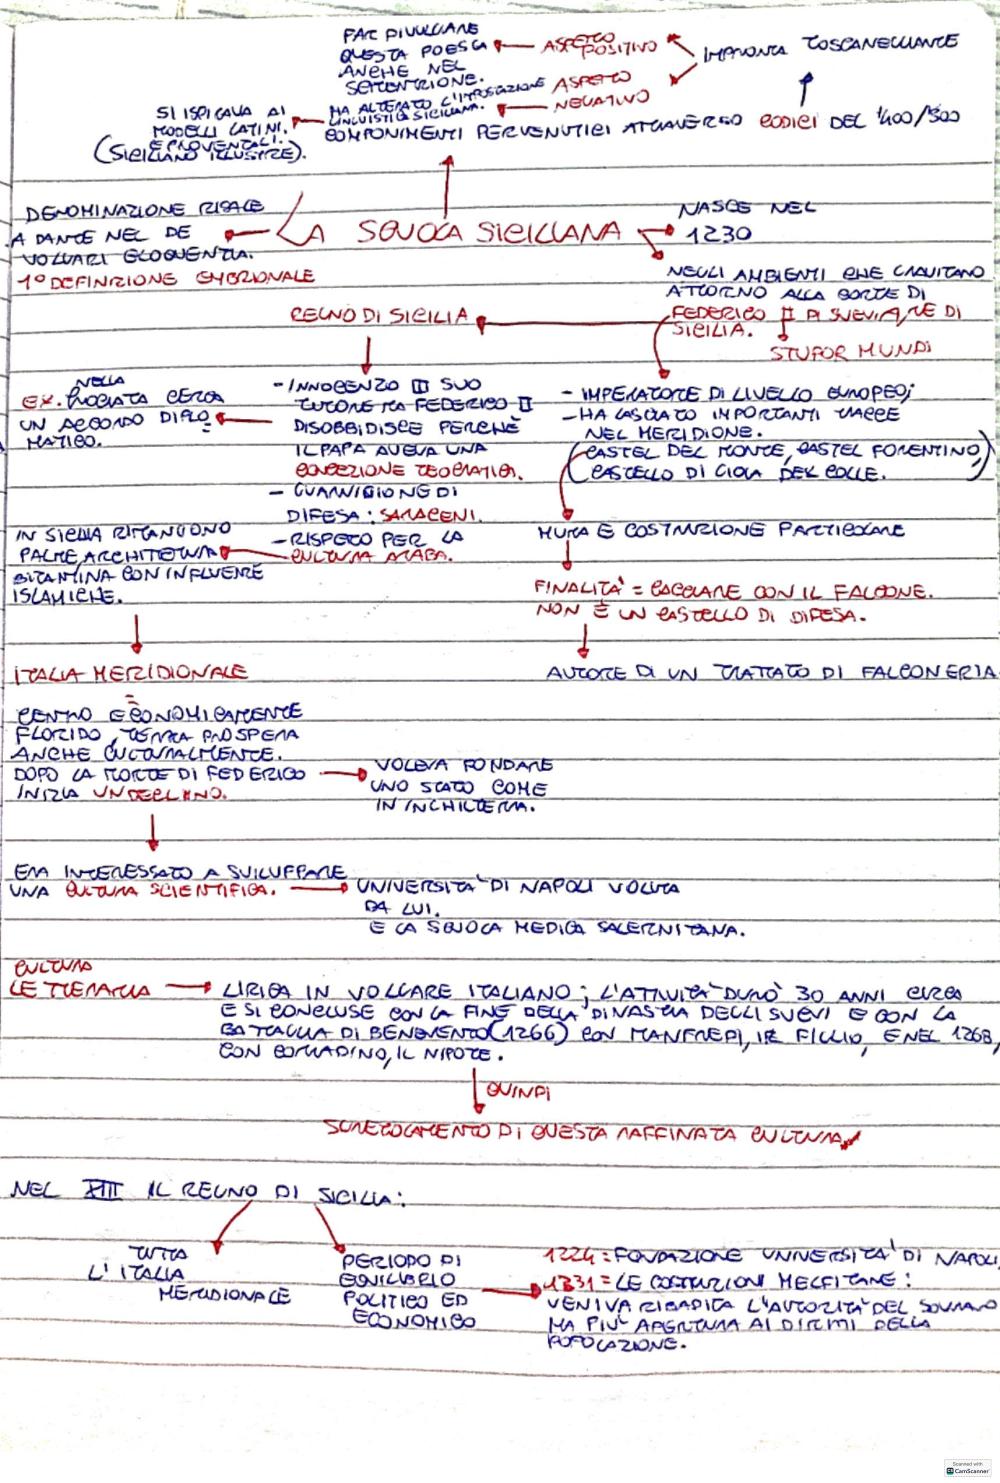 FAR DIVULGARE
QUESTA POESIA
ANCHE NEL
SETTENTRIONE.
ASPETTO
POSITIVO
IMPRONTA TOSCANEGGIANTE
HA ALTERATO L'IMPOSTAZIONE
LINGUISTICA SICILIANA.
ASPETTO
NEGATIVO
SI ISPIRAVA AI
MODELLI LATINI.
E PROVENZALI.
(SICILIANO ILLUSTRE).
COMPONIMENTI PERVENUTICI ATTRAVERSO CODICI DEL '400/'500
DENOMINAZIONE RISALE
A DANTE NEL DE
VULGARI ELOQUENTIA.
1° DEFINIZIONE EMBRIONALE
LA SCUOLA SICILIANA
NASCE NEL
1230
NEGLI AMBIENTI CHE GRAVITANO
ATTORNO ALLA CORTE DI
FEDERICO II DI SVEVIA, RE DI
SICILIA.
STUPOR MUNDI
REGNO DI SICILIA
- INNOCENZO III SUO
TUTORE MA FEDERICO II
DISOBBIDISCE PERCHÈ
IL PAPA AVEVA UNA
CONCEZIONE TEOCRATICA.
- GUARNIGIONE DI
DIFESA: SARACENI.
- RISPETTO PER LA
CULTURA ARABA.
NELLA
EX. CROCIATA CERCA
UN ACCORDO DIPLO
MATICO.
- IMPERATORE DI LIVELLO EUROPEO;
- HA LASCIATO IMPORTANTI TRACCE
NEL MERIDIONE.
(CASTEL DEL MONTE, CASTEL FORENTINO,
CASTELLO DI GIOIA DEL COLLE.)
MURA E COSTRUZIONE PARTICOLARE
FINALITÀ = CACCIARE CON IL FALCONE.
NON È UN CASTELLO DI DIFESA.
AUTORE DI UN TRATTATO DI FALCONERIA
IN SICILIA RIMANGONO
PALME, ARCHITETTURA
BIZANTINA CON INFLUENZE
ISLAMICHE.
ITALIA MERIDIONALE
=
CENTRO ECONOMICAMENTE
FLORIDO, TERRA PROSPERA
ANCHE CULTURALMENTE.
DOPO LA MORTE DI FEDERICO
INIZIA UN DECLINO.
VOLEVA FONDARE
UNO STATO COME
IN INGHILTERRA.
ERA INTERESSATO A SVILUPPARE
UNA CULTURA SCIENTIFICA.
UNIVERSITÀ DI NAPOLI VOLUTA
DA LUI.
E LA SCUOLA MEDICA SALERNITANA.
CULTURA
LETTERARIA
LIRICA IN VOLGARE ITALIANO; L'ATTIVITÀ DURÒ 30 ANNI CIRCA
E SI CONCLUSE CON LA FINE DELLA DINASTIA DEGLI SVEVI E CON LA
BATTAGLIA DI BENEVENTO (1266) CON MANFREDI, IL FIGLIO, E NEL 1268,
CON CORRADINO, IL NIPOTE.
QUINDI
SGRETOLAMENTO DI QUESTA RAFFINATA CULTURA
NEL XIII IL REGNO DI SICILIA:
TUTTA
L'ITALIA
MERIDIONALE
PERIODO DI
EQUILIBRIO
POLITICO ED
ECONOMICO
1224 = FONDAZIONE UNIVERSITÀ DI NAPOLI,
1231 = LE COSTITUZIONI MELFITANE:
VENIVA RIBADITA L'AUTORITÀ DEL SOVRANO
MA PIÙ APERTURA AI DIRITTI DELLA
POPOLAZIONE.
Scanned with
CamScanner